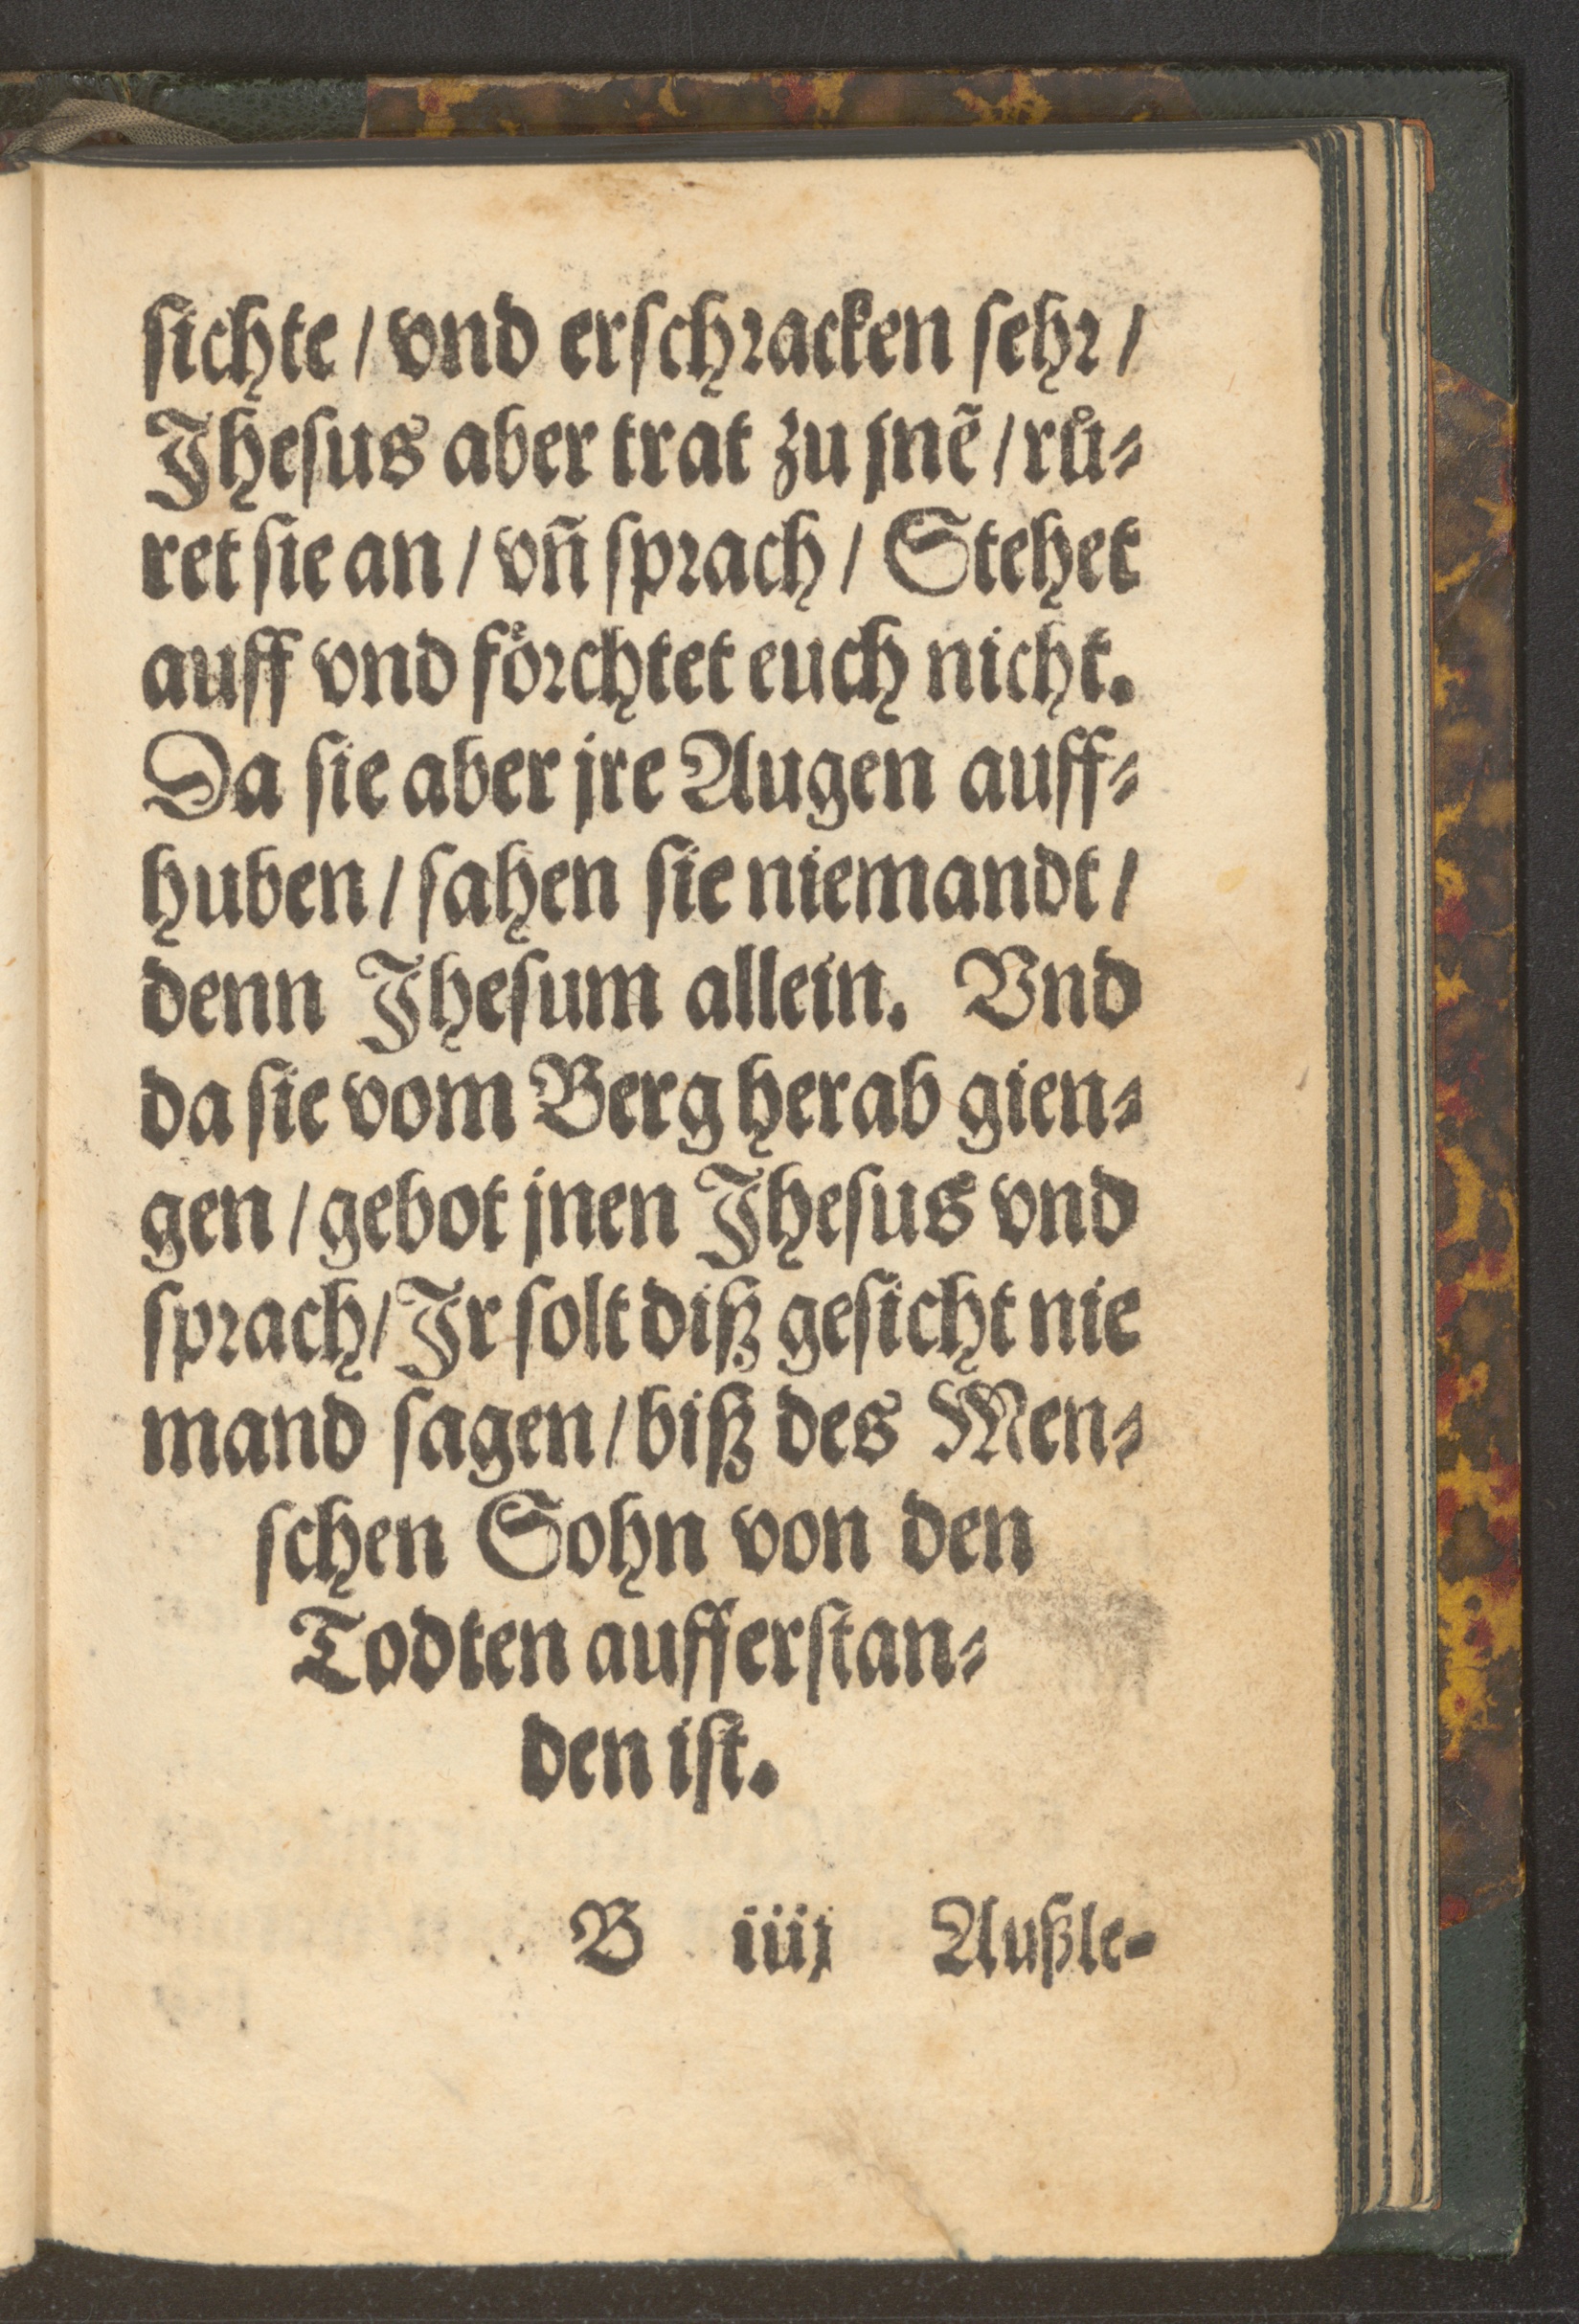 ſichte / vnd erſchꝛacken ſehꝛ /
Jheſus aber trat zu jnẽ / ruͤ⸗
ret ſie an / vñ ſpꝛach / Stehet
auff vnd foͤꝛchtet euch nicht.
Da ſie aber jre Augen auff⸗
huben / ſahen ſie niemandt /
denn Jheſum allein. Vnd
da ſie vom Berg herab gien⸗
gen / gebot jnen Jheſus vnd
ſpꝛach / Jr ſolt diß geſicht nie
mand ſagen / biß des Men⸗
ſchen Sohn von den
Todten aufferſtan⸗
den iſt.
B iiij Außle-